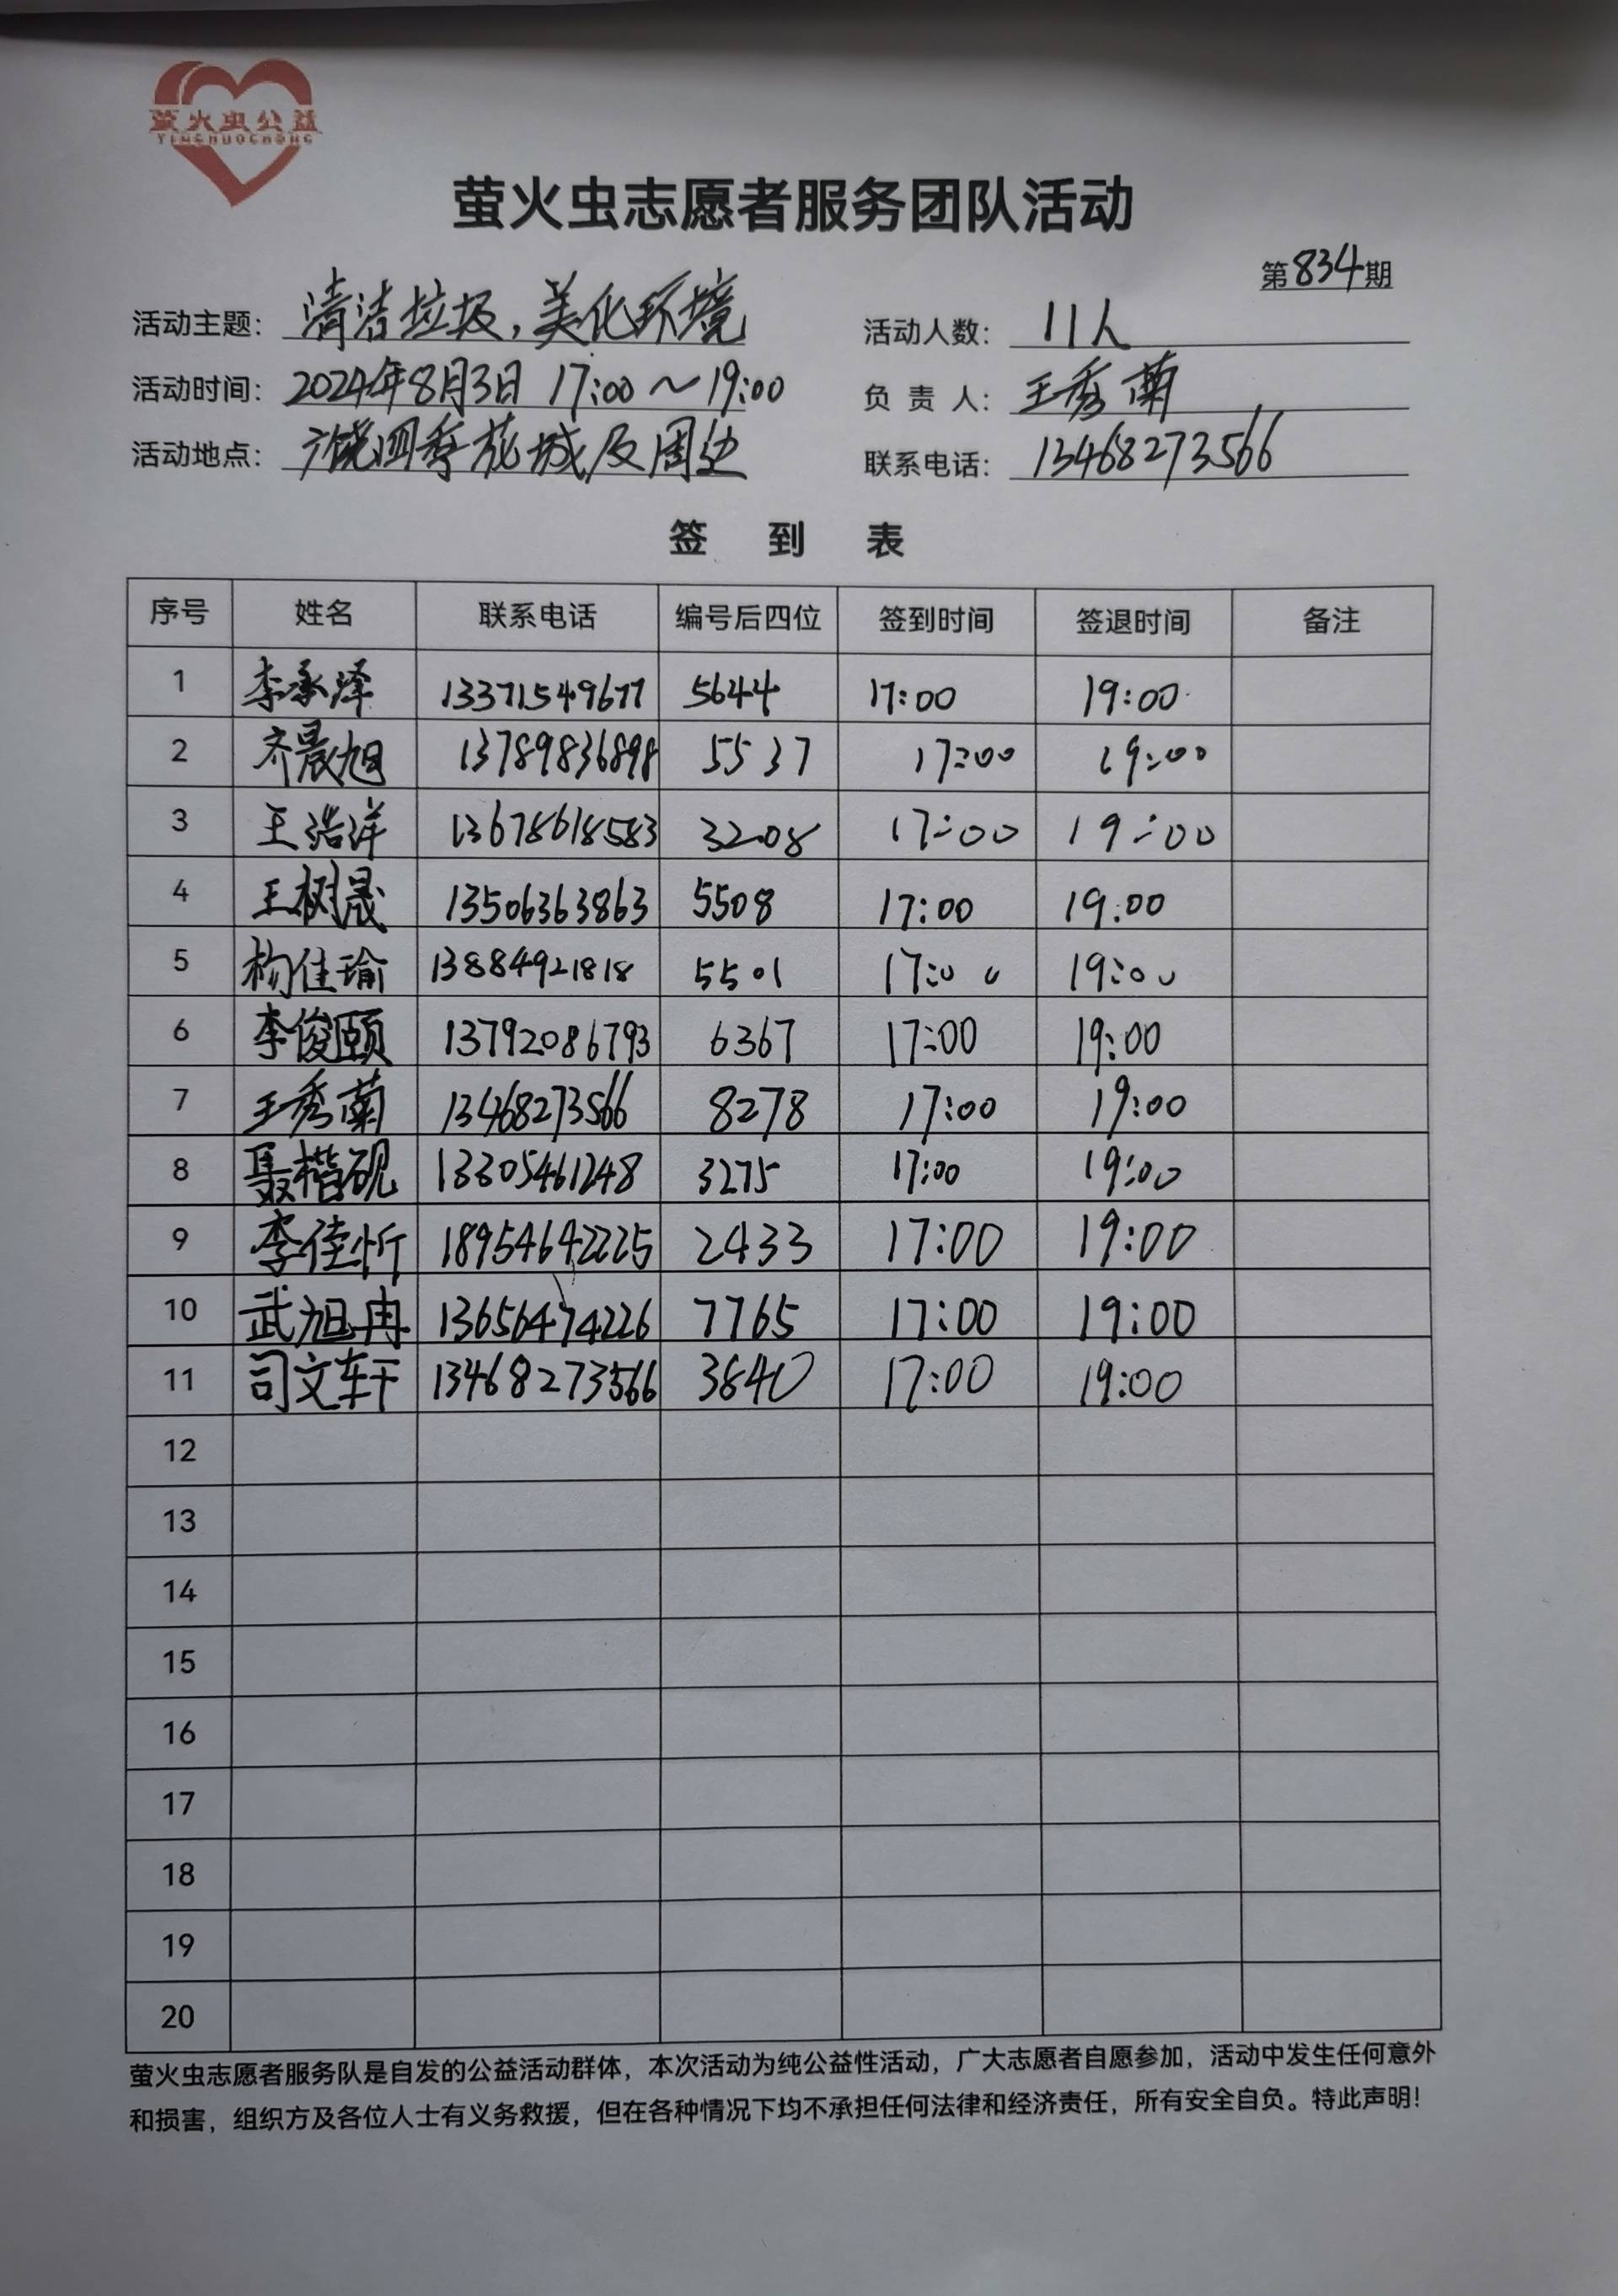 萤火虫公益
YINGHUOCHONG
萤火虫志愿者服务团队活动
第834期
活动主题：清洁垃圾，美化环境 活动人数：11人
活动时间：2024年8月3日 17:00～19:00 负责人：王秀菊
活动地点：四季花城及周边 联系电话：13468273566
签到表
序号 姓名 联系电话 编号后四位 签到时间 签退时间 备注
1 李承泽 13371549677 5644 17:00 19:00
2 齐晨旭 13789836898 5537 17:00 19:00
3 王浩洋 13678618583 3208 17:00 19:00
4 王树晟 13506363863 5508 17:00 19:00
5 杨佳瑜 13884921818 5501 17:00 19:00
6 李俊颐 13792086793 6367 17:00 19:00
7 王秀菊 13468273566 8278 17:00 19:00
8 聂楷砚 13305461248 3275 17:00 19:00
9 李佳忻 18954642225 2433 17:00 19:00
10 武旭冉 13656474226 7765 17:00 19:00
11 司文轩 13468273566 3840 17:00 19:00
12
13
14
15
16
17
18
19
20
萤火虫志愿者服务队是自发的公益活动群体，本次活动为纯公益性活动，广大志愿者自愿参加，活动中发生任何意外
和损害，组织方及各位人士有义务救援，但在各种情况下均不承担任何法律和经济责任，所有安全自负。特此声明！